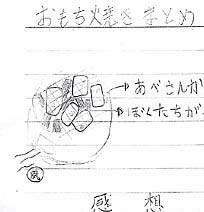 おもち焼きまとめ
→あべさんが
→ぼくたちが
感想